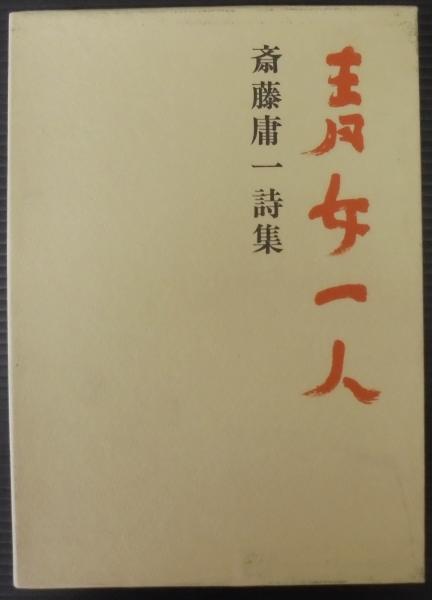 青女一人
斎藤庸一詩集